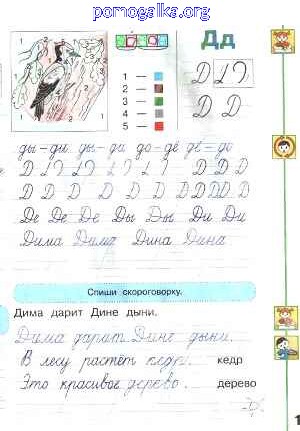 pomogalka.org
Дд
1 —
2 —
3 —
4 —
5 —
Д
Д Д
ды – ди ды – ди до – дё дё – до
Д Д Д Д
Д Д Д Д Д Д Д Д Д Д
Де Де Де Ды Ды Ди Ди
Дима Дима Дина Дина
Спиши скороговорку.
Дима дарит Дине дыни.
Дима дарит Дине дыни.
В лесу растёт кедр. кедр
Это красивое дерево. дерево
1